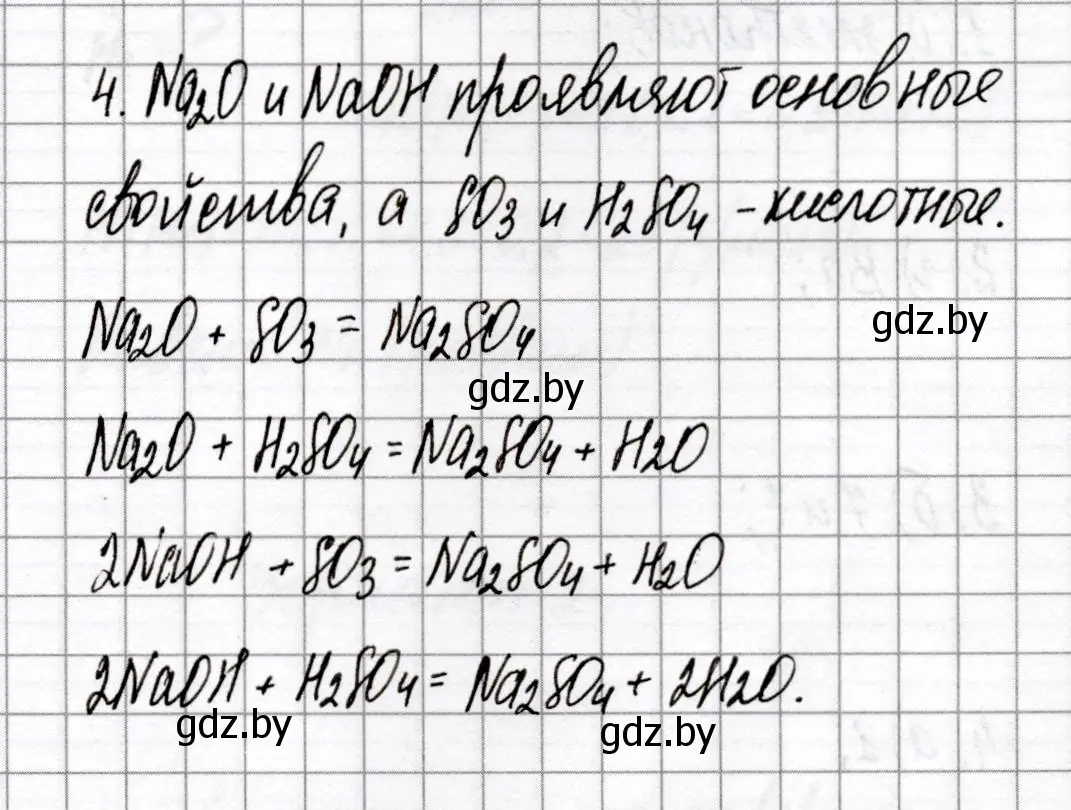 4. Na₂O и NaOH проявляют основные
свойства, а SO₃ и H₂SO₄ - кислотные.
Na₂O + SO₃ = Na₂SO₄
gdz.by
gdz.by
Na₂O + H₂SO₄ = Na₂SO₄ + H₂O
2NaOH + SO₃ = Na₂SO₄ + H₂O
2NaOH + H₂SO₄ = Na₂SO₄ + 2H₂O.
gdz.by
gdz.by